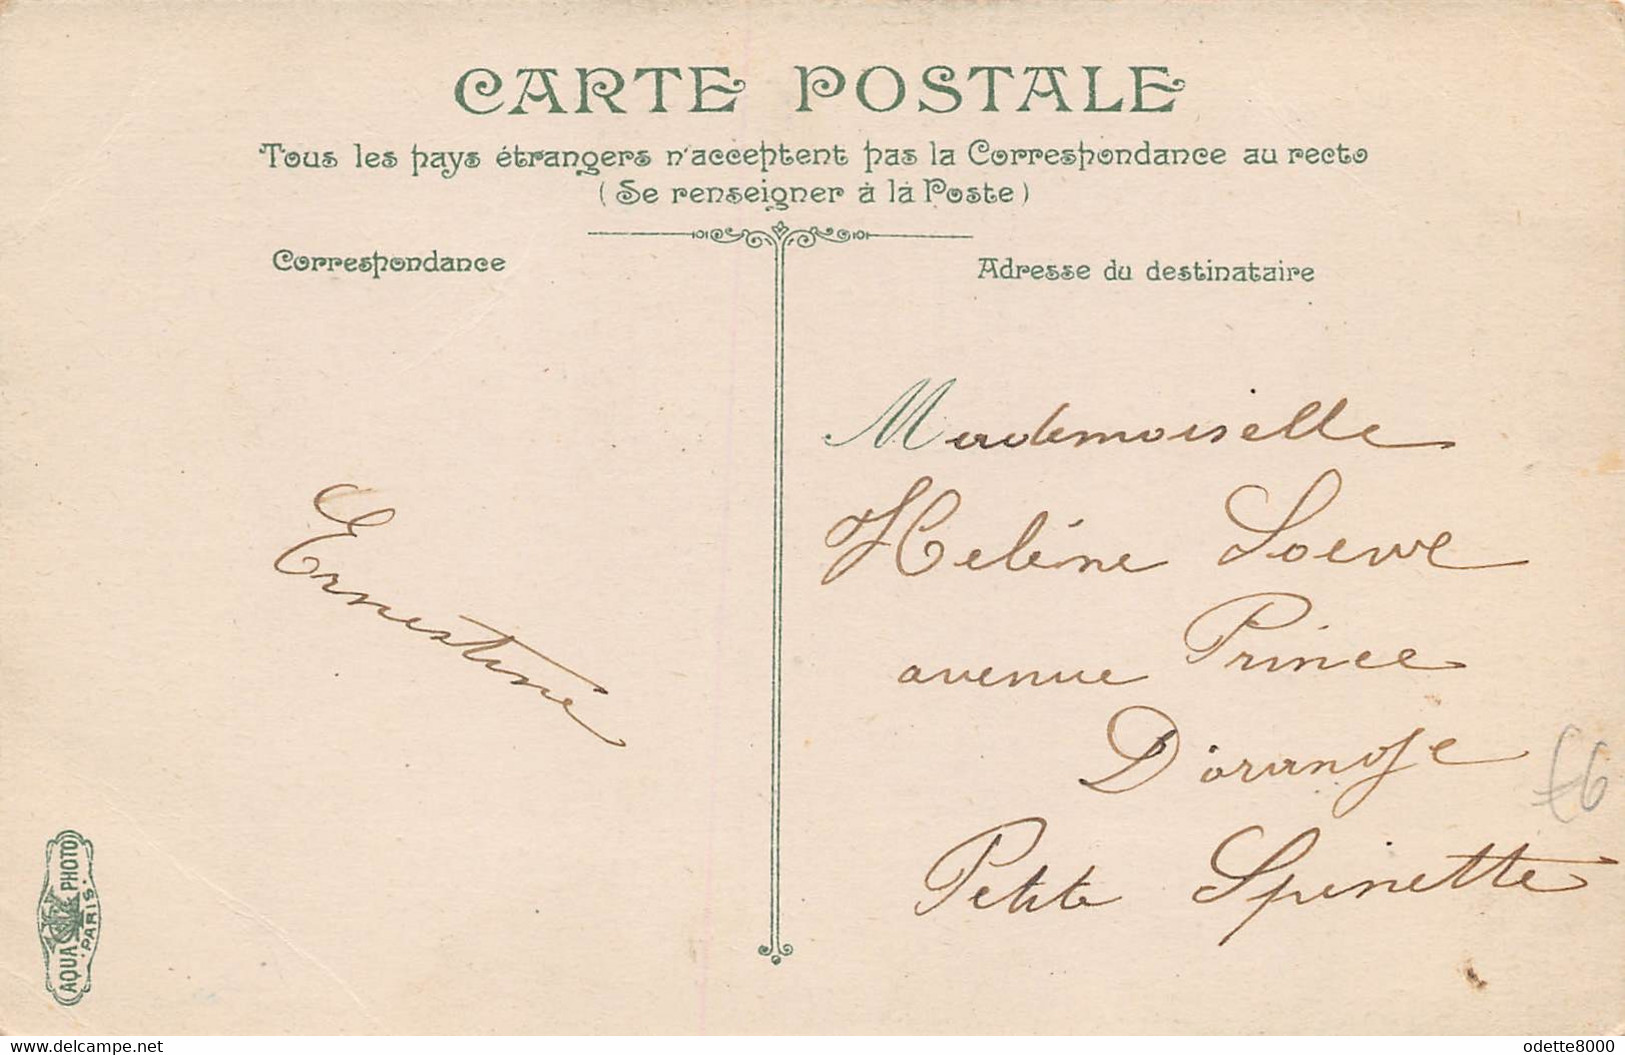 CARTE POSTALE
Tous les pays étrangers n'acceptent pas la Correspondance au recto
(Se renseigner à la Poste)
Correspondance
Adresse du destinataire
Mademoiselle
Helène Loewe
avenue Prince
D'orange
Petite Spinette
Ernestine
£6
AQUA PHOTO
PARIS
delcampe.net
odette8000